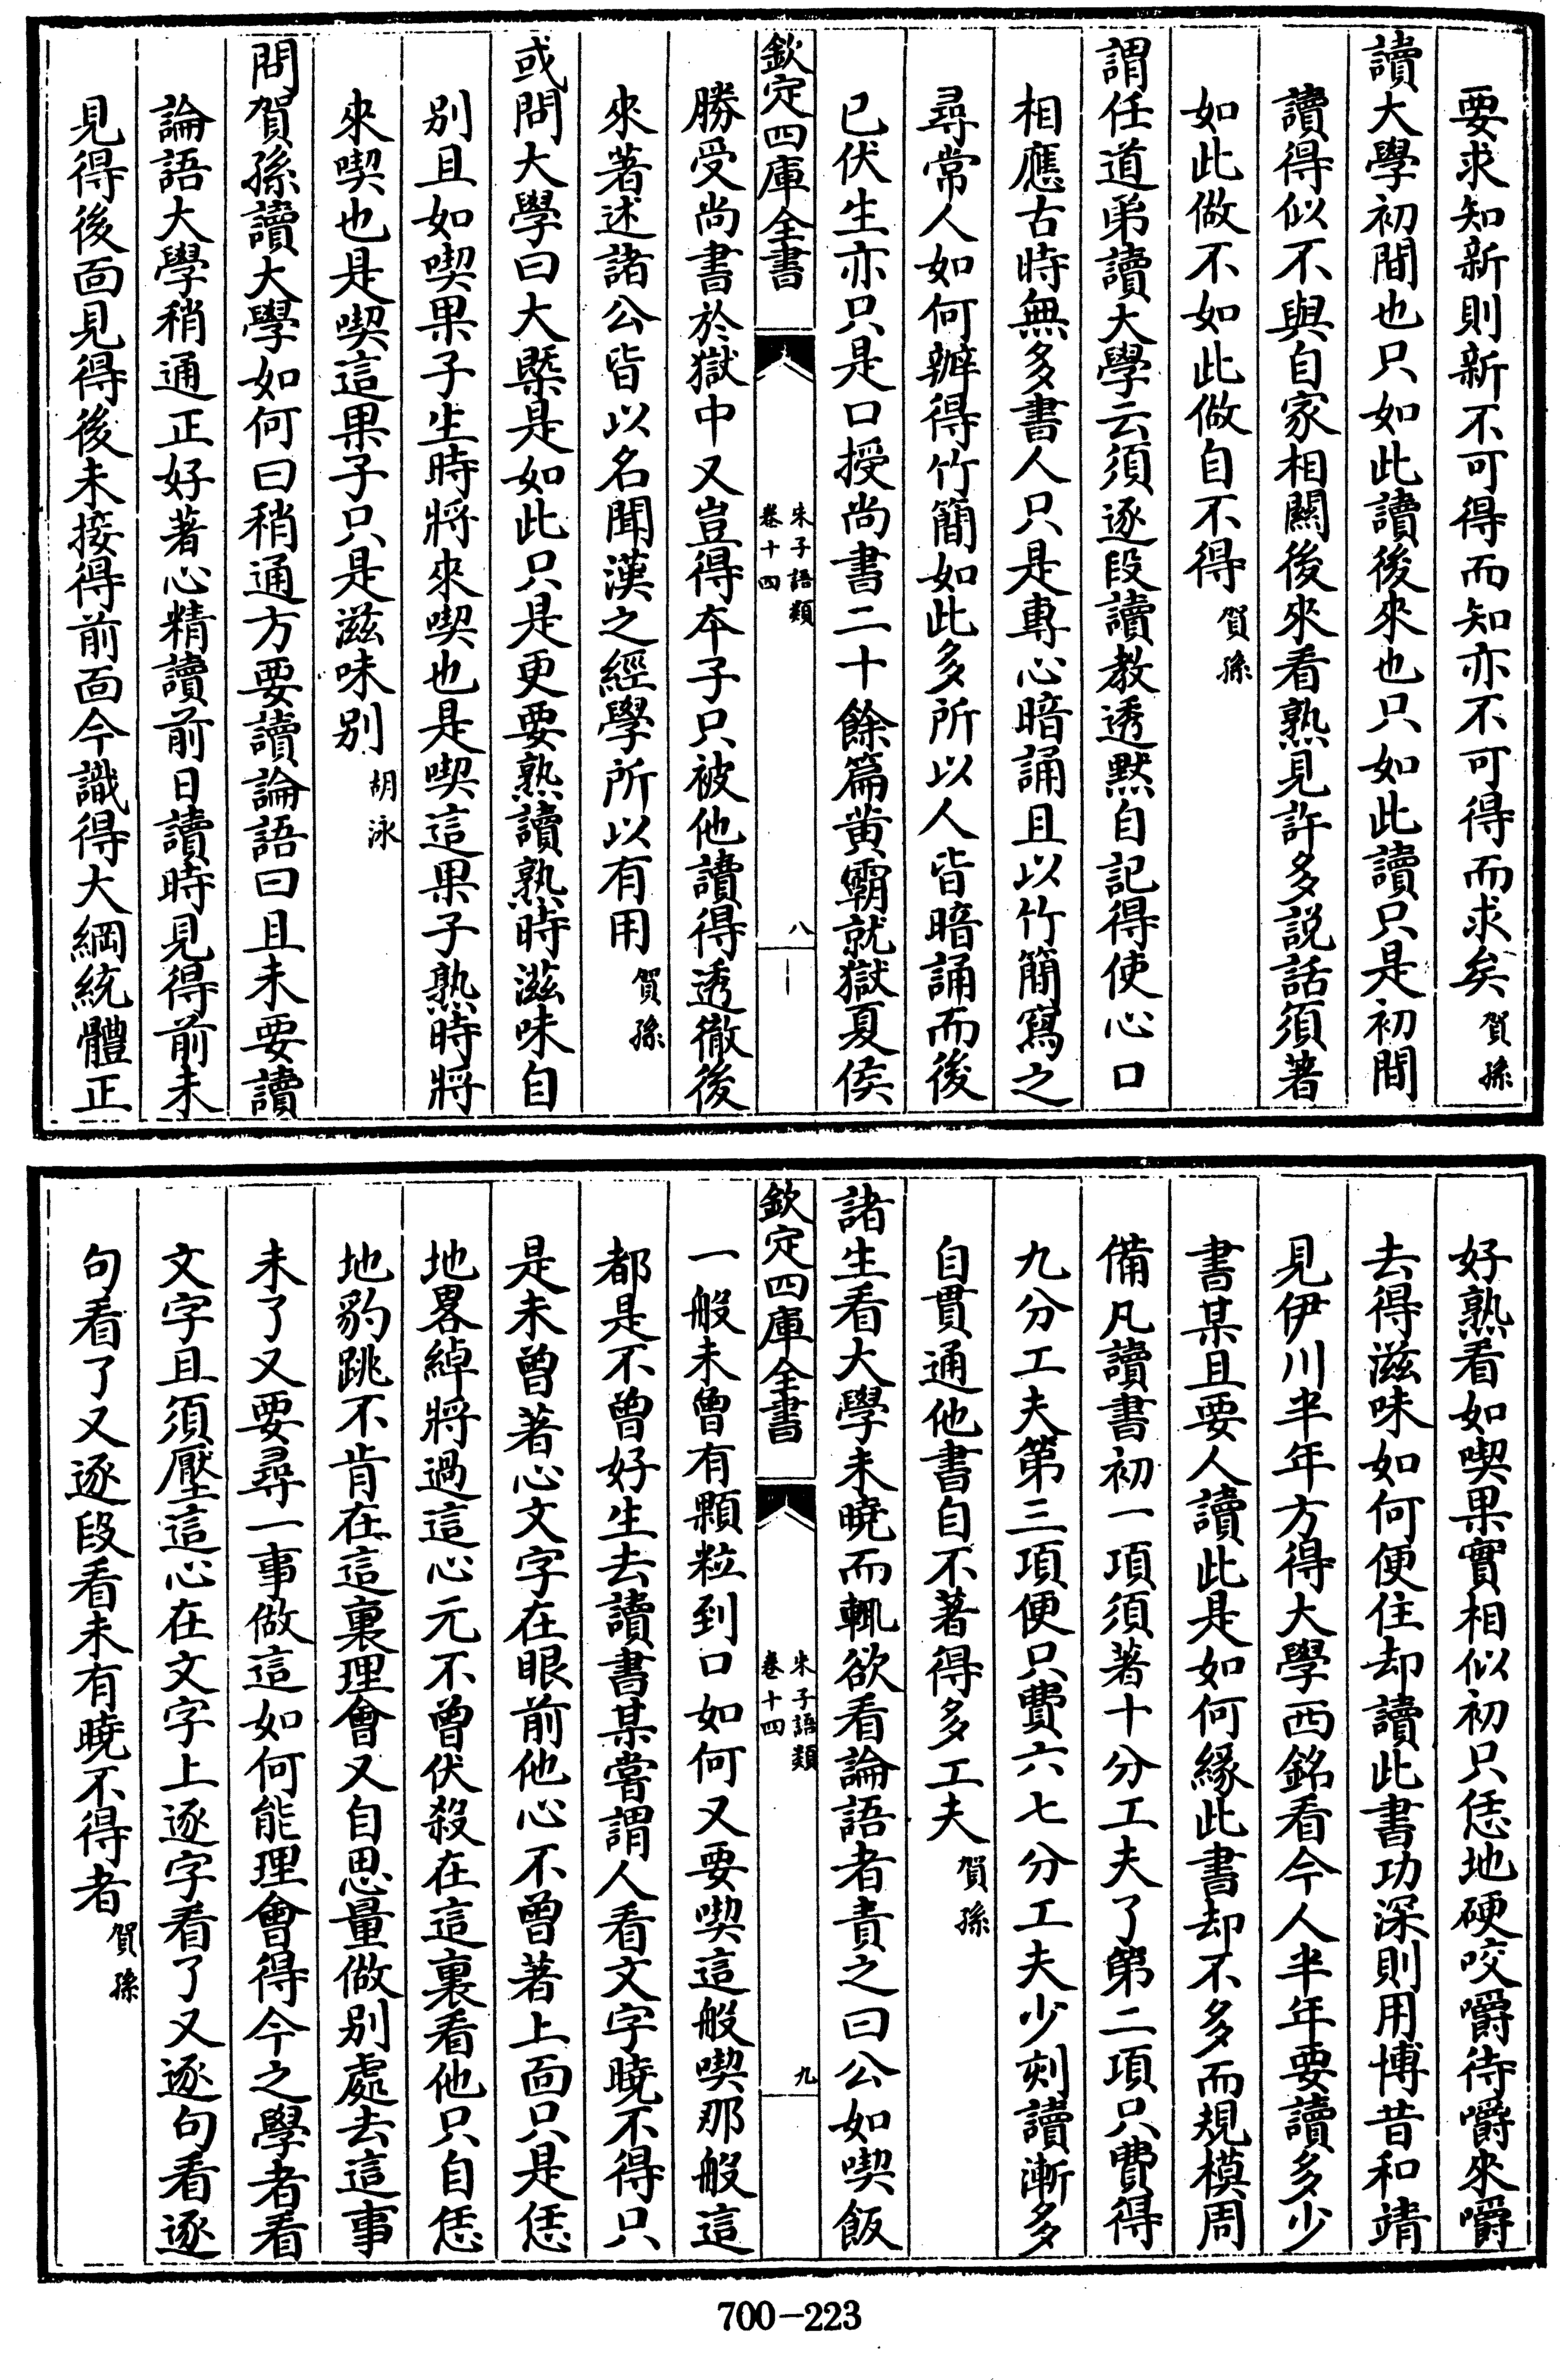 要求知新則新不可得而知亦不可得而求矣賀孫
讀大學初間也只如此讀後來也只如此讀只是初間
讀得似不與自家相關後來看熟見許多説話須著
如此做不如此做自不得賀孫
謂任道弟讀大學云須逐段讀教透黙自記得使心口
相應古時無多書人只是專心暗誦且以竹簡寫之
尋常人如何辦得竹簡如此多所以人皆暗誦而後
已伏生亦只是口授尚書二十餘篇黄霸就獄夏侯
欽定四庫全書
朱子語類
卷十四
八
勝受尚書於獄中又豈得本子只被他讀得透徹後
來著述諸公皆以名聞漢之經學所以有用賀孫
或問大學曰大槩是如此只是更要熟讀熟時滋味自
别且如喫果子生時將來喫也是喫這果子熟時將
來喫也是喫這果子只是滋味别胡泳
問賀孫讀大學如何曰稍通方要讀論語曰且未要讀
論語大學稍通正好著心精讀前日讀時見得前未
見得後面見得後未接得前面今識得大綱統體正
好熟看如喫果實相似初只恁地硬咬嚼待嚼來嚼
去得滋味如何便住却讀此書功深則用博昔和靖
見伊川半年方得大學西銘看今人半年要讀多少
書某且要人讀此是如何縁此書却不多而規模周
備凡讀書初一項須著十分工夫了第二項只費得
九分工夫第三項便只費六七分工夫少刻讀漸多
自貫通他書自不著得多工夫賀孫
諸生看大學未曉而輒欲看論語者責之曰公如喫飯
欽定四庫全書
朱子語類
卷十四
九
一般未曾有顆粒到口如何又要喫這般喫那般這
都是不曾好生去讀書某嘗謂人看文字曉不得只
是未曾著心文字在眼前他心不曾著上面只是恁
地畧綽將過這心元不曾伏殺在這裏看他只自恁
地豹跳不肯在這裏理會又自思量做别處去這事
未了又要尋一事做這如何能理會得今之學者看
文字且須壓這心在文字上逐字看了又逐句看逐
句看了又逐段看未有曉不得者賀孫
700-223